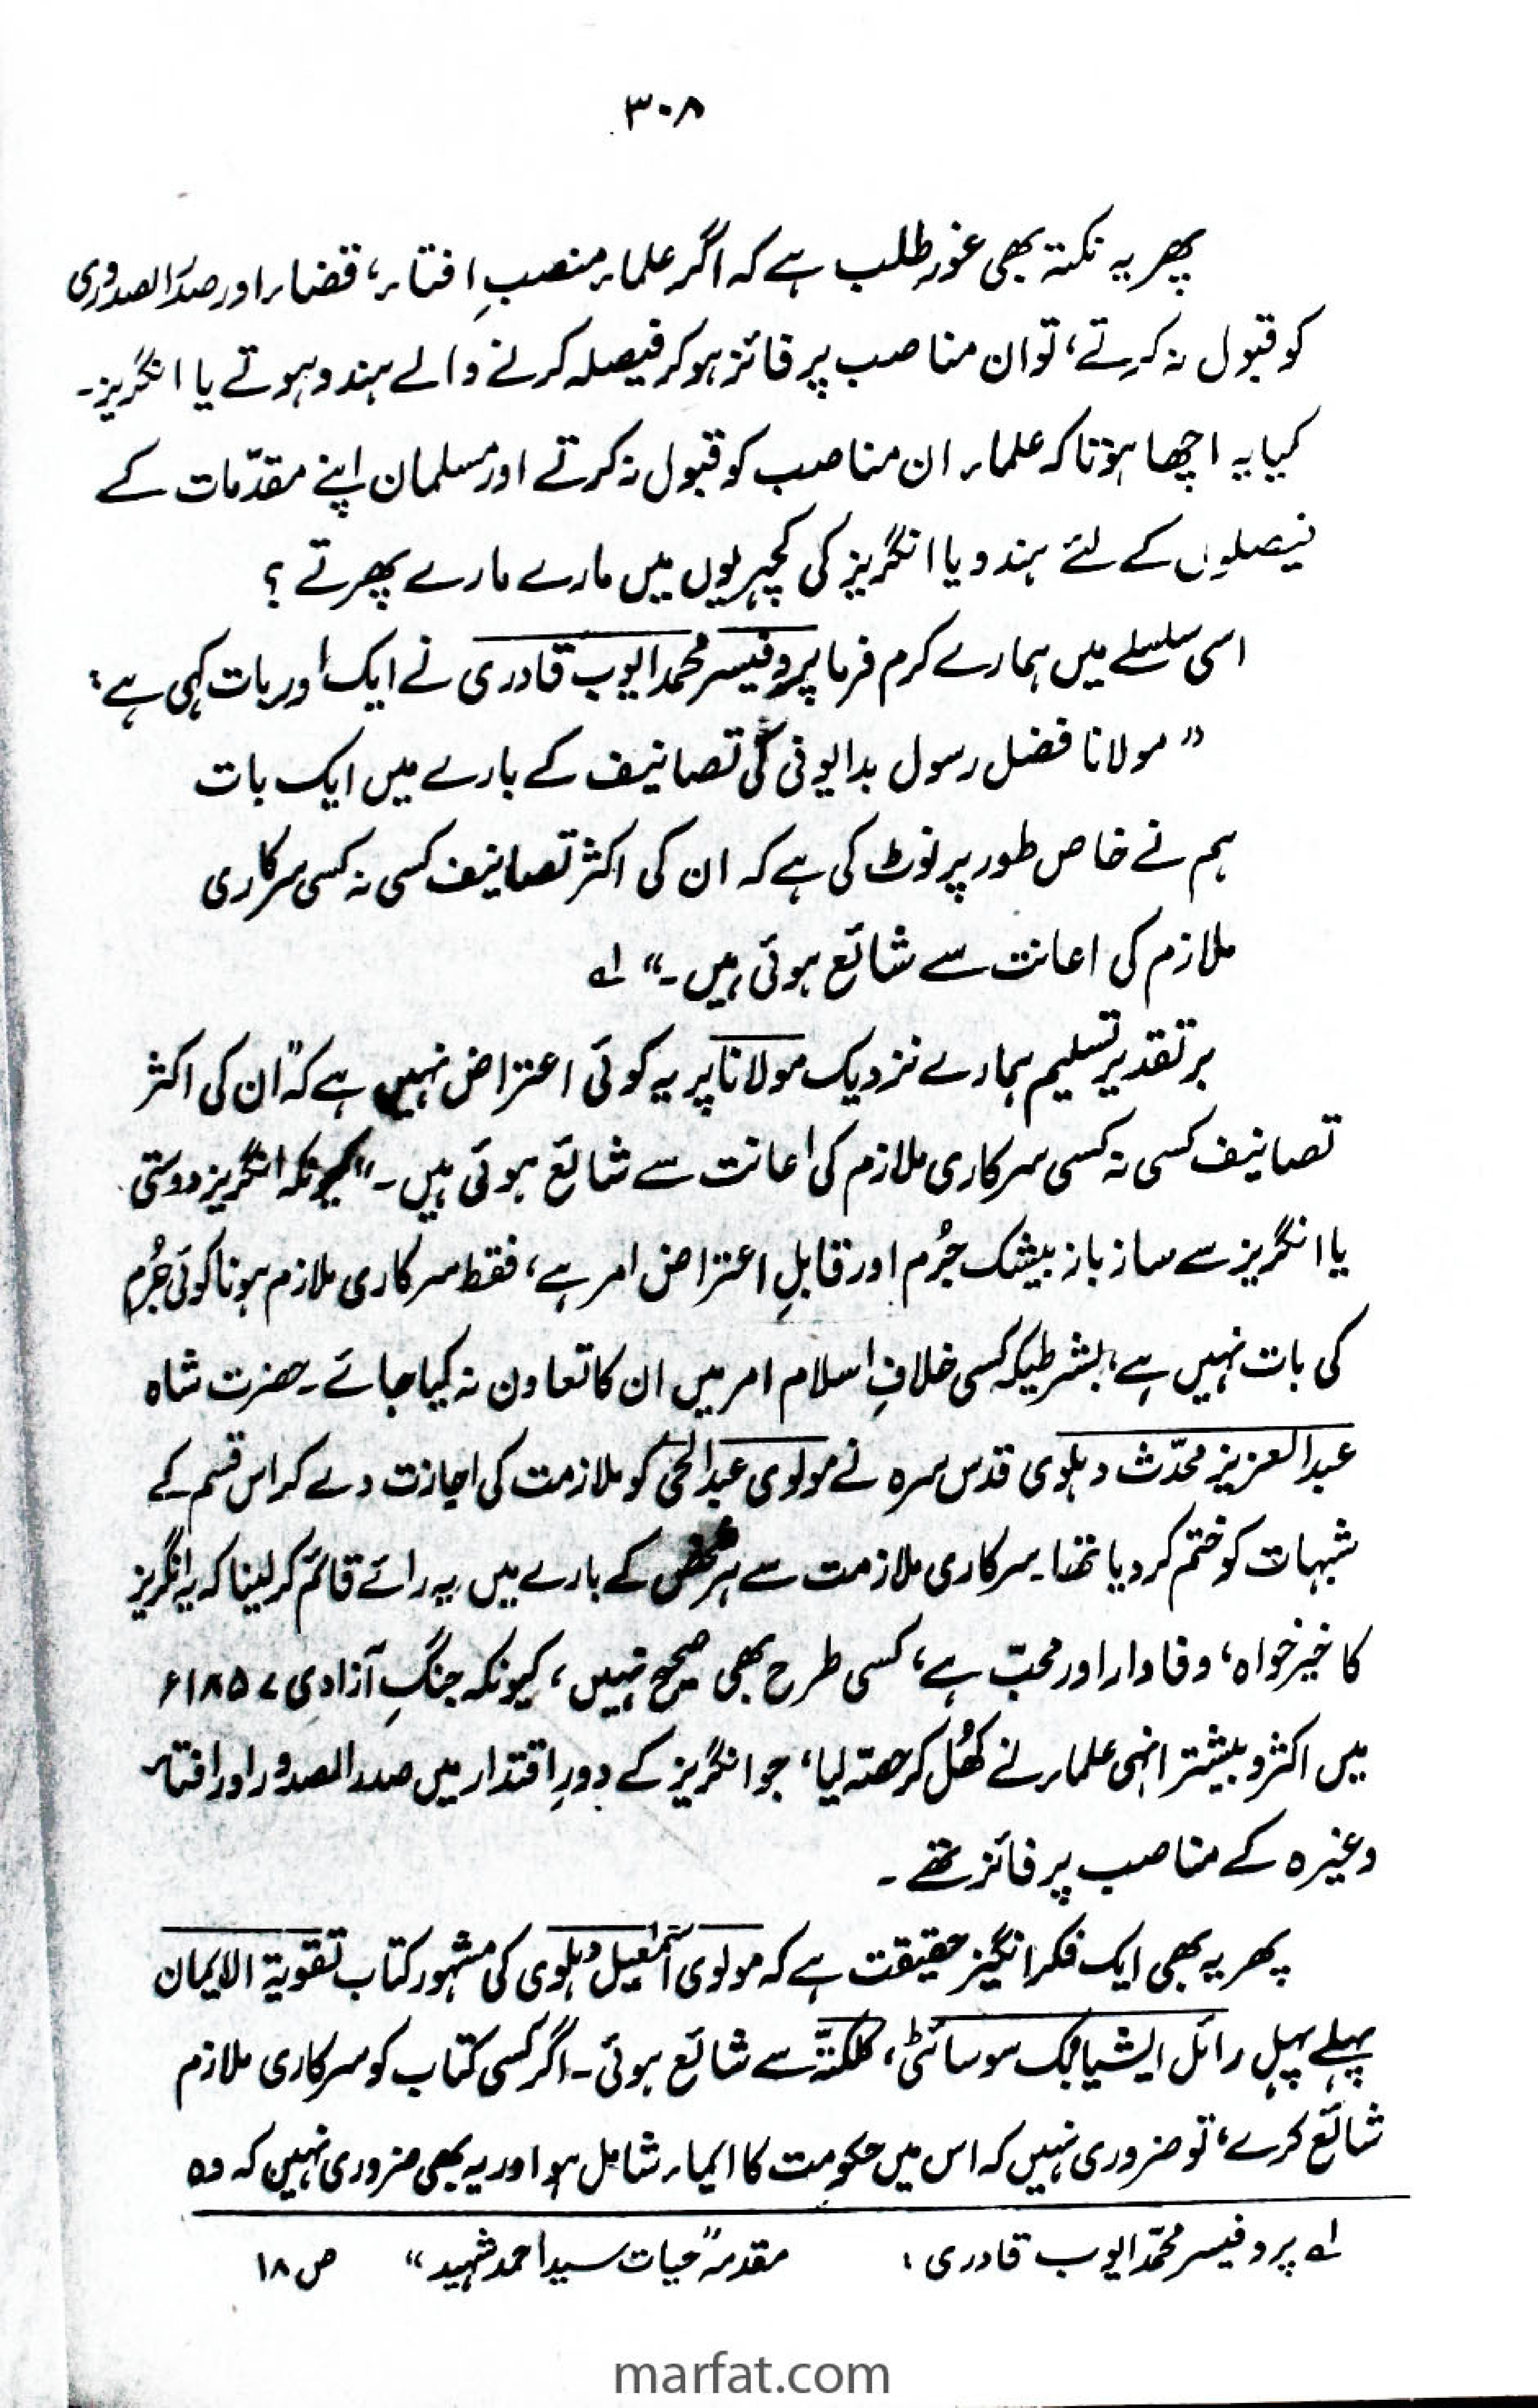 ۳۰۸
پھر یہ نکتہ بھی غور طلب ہے کہ اگر علماء منصبِ افتاء، قضاء اور صدر الصدوری
کو قبول نہ کرتے، تو ان مناصب پر فائز ہو کر فیصلہ کرنے والے ہندو ہوتے یا انگریز۔
کیا یہ اچھا ہوتا کہ علماء ان مناصب کو قبول نہ کرتے اور مسلمان اپنے مقدّمات کے
فیصلوں کے لئے ہندو یا انگریز کی کچہریوں میں مارے مارے پھرتے ؟
اسی سلسلے میں ہمارے کرم فرما پروفیسر محمد ایوب قادری نے ایک اور بات کہی ہے :
”مولانا فضل رسول بدایونی کی تصانیف کے بارے میں ایک بات
ہم نے خاص طور پر نوٹ کی ہے کہ ان کی اکثر تصانیف کسی نہ کسی سرکاری
ملازم کی اعانت سے شائع ہوئی ہیں۔“ ؂۱
بر تقدیر تسلیم ہمارے نزدیک مولانا پر یہ کوئی اعتراض نہیں ہے کہ ”ان کی اکثر
تصانیف کسی نہ کسی سرکاری ملازم کی اعانت سے شائع ہوئی ہیں۔“ کیونکہ انگریز دوستی
یا انگریز سے ساز باز بیشک جُرم اور قابلِ اعتراض امر ہے، فقط سرکاری ملازم ہونا کوئی جُرم
کی بات نہیں ہے، بشرطیکہ کسی خلافِ اسلام امر میں ان کا تعاون نہ کیا جائے۔ حضرت شاہ
عبدالعزیز محدّث دہلوی قدس سرہ نے مولوی عبدالحیٔ کو ملازمت کی اجازت دے کر اس قسم کے
شبہات کو ختم کر دیا تھا۔ سرکاری ملازمت سے ہر شخص کے بارے میں یہ رائے قائم کر لینا کہ یہ انگریز
کا خیر خواہ، وفادار اور محبّ ہے، کسی طرح بھی صحیح نہیں، کیونکہ جنگِ آزادی ۱۸۵۷ء
میں اکثر و بیشتر انہی علماء نے کھُل کر حصّہ لیا، جو انگریز کے دورِ اقتدار میں صدر الصدور اور افتاء
وغیرہ کے مناصب پر فائز تھے۔
پھر یہ بھی ایک فکر انگیز حقیقت ہے کہ مولوی اسمٰعیل دہلوی کی مشہور کتاب تقویۃ الایمان
پہلے پہل رائل ایشیاٹک سوسائٹی، کلکتّہ سے شائع ہوئی۔ اگر کسی کتاب کو سرکاری ملازم
شائع کرے، تو ضروری نہیں کہ اس میں حکومت کا ایماء شامل ہو اور یہ بھی ضروری نہیں کہ وہ
؂۱ پروفیسر محمّد ایوب قادری : مقدمہ ”حیات سید احمد شہید“ ص ۱۸
marfat.com